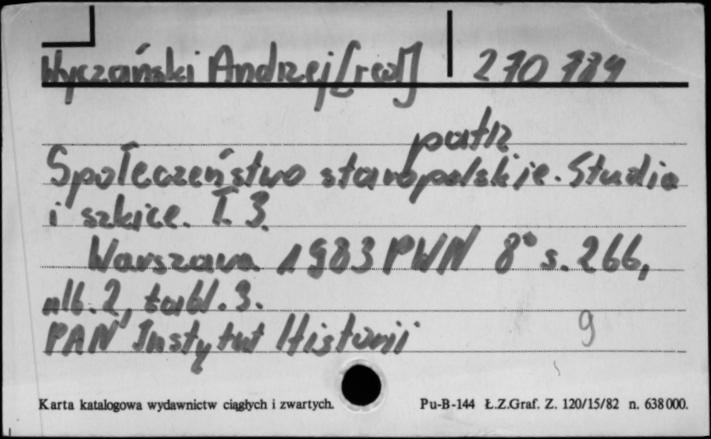 Wyczański Andrzej [red] 270 784
patrz
Społeczeństwo staropolskie. Studia
i szkice. T. 3.
Warszawa 1983 PWN 8° s. 266,
nlb. 2, tabl. 3.
PAN Instytut Historii 9
Karta katalogowa wydawnictw ciągłych i zwartych. Pu-B-144 Ł.Z.Graf. Z. 120/15/82 n. 638 000.